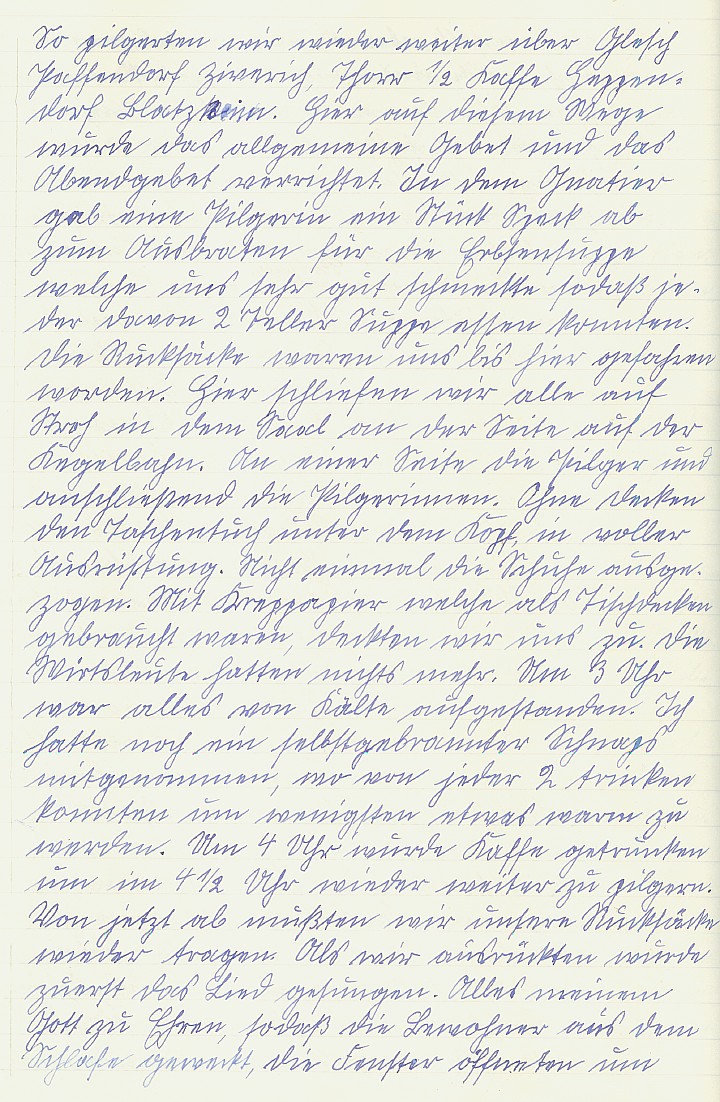 So pilgerten wir wieder weiter über Glesch
Paffendorf Ziverich, Thorr 1/2 Kaffe Heppen-
dorf Blatzheim. Hier auf diesem Wege
wurde das allgemeine Gebet und das
Abendgebet verrichtet. In dem Quatier
gab eine Pilgerin ein Stück Speck ab
zum Ausbraten für die Erbsensuppe
welche uns sehr gut schmeckte sodaß je-
der davon 2 Teller Suppe essen konnten.
Die Rucksäcke waren uns bis hier gefahren
worden. Hier schliefen wir alle auf
Stroh in dem Saal an der Seite auf der
Kegelbahn. An einer Seite die Pilger und
anschließend die Pilgerinnen. Ohne Decken
den Taschentuch unter dem Kopf, in voller
Ausrüstung. Nicht einmal die Schuhe ausge-
zogen. Mit Kreppapier welche als Tischdecken
gebraucht waren, deckten wir uns zu. Die
Wirtsleute hatten nichts mehr. Um 3 Uhr
war alles von Kälte aufgestanden. Ich
hatte noch ein selbstgebrannter Schnaps
mitgenommen, wo von jeder 2 trinken
konnten um wenigsten etwas warm zu
werden. Um 4 Uhr wurde Kaffe getrunken
um im 4 1/2 Uhr wieder weiter zu pilgern.
Von jetzt ab mußten wir unsere Rucksäcke
wieder tragen. Als wir ausrückten wurde
zuerst das Lied gesungen. Alles meinem
Gott zu Ehren, sodaß die Bewohner aus dem
Schlafe geweckt, die Fenster öffneten um